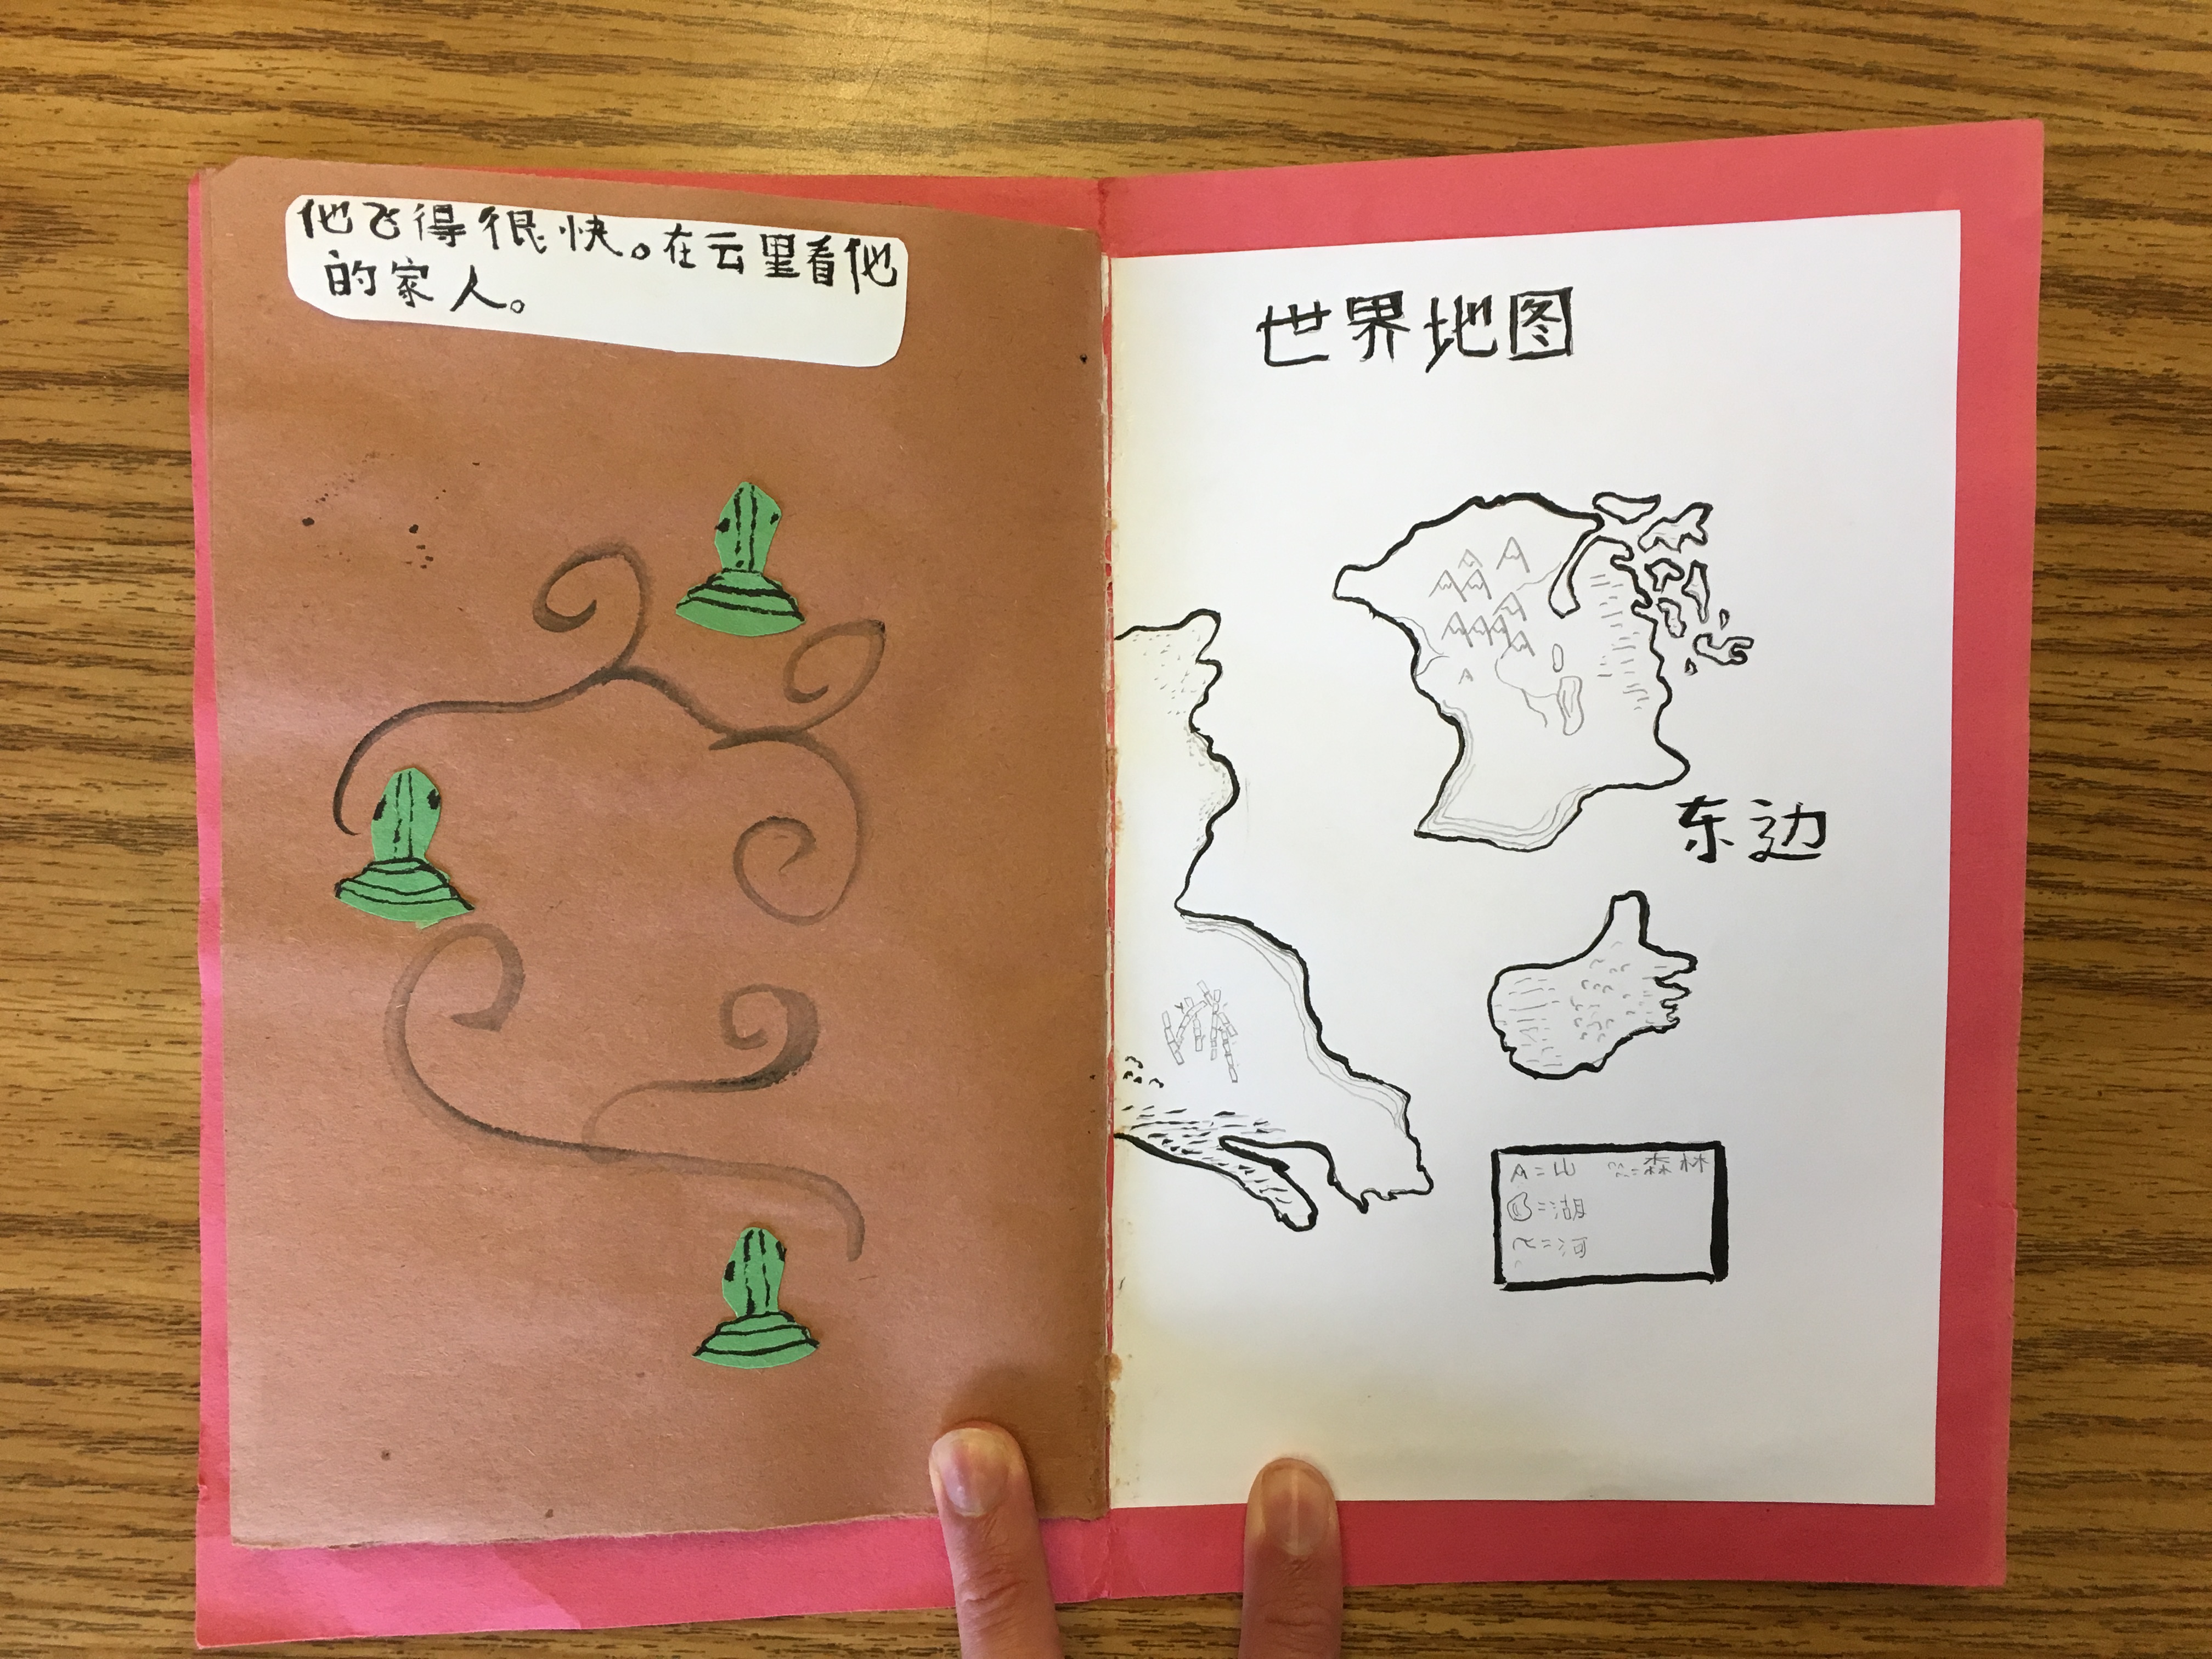 他飞得很快。在云里看他
的家人。
世界地图
东边
=山 =森林
=湖
=河